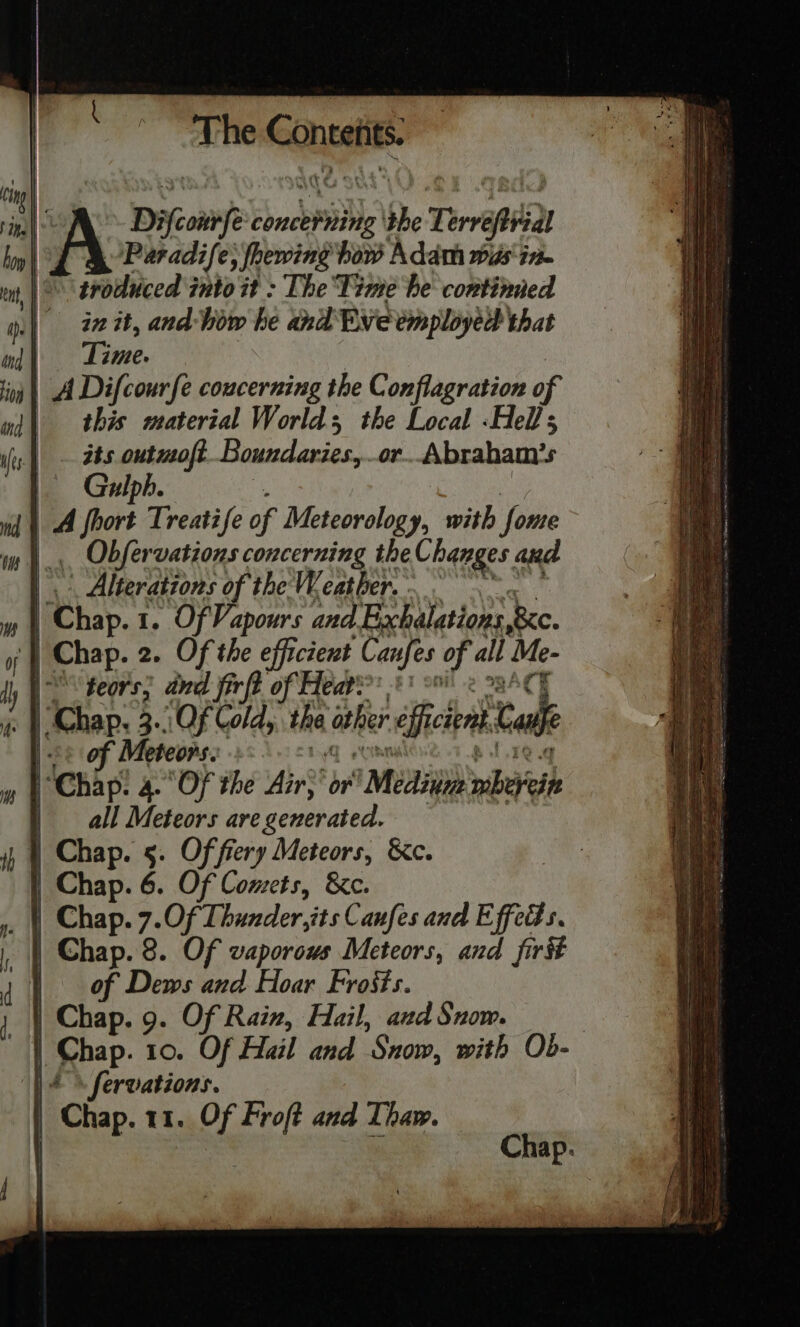 The Contents.
A Diſcourſe concerning the Terreſtrial
Paradiſe, ſhewing how Adam was in-
troduced into it : The Time he continued
in it, and how he and Eve employed that
Time.
A Diſcourſe concerning the Conflagration of
this material World; the Local Hell;
its outmoſt Boundaries, or Abraham's
Gulph.
A ſhort Treatiſe of Meteorology, with ſome
Obſervations concerning the Changes and
Alterations of the Weather.
Chap. 1. Of Vapours and Exhalations, &c.
Chap. 2. Of the efficient Cauſes of all Me-
teors; and firſt of Heat.
Chap. 3. Of Cold, the other efficient Cauſe
of Meteors.
Chap. 4. Of the Air, or Medium wherein
all Meteors are generated.
Chap. 5. Of fiery Meteors, &c.
Chap. 6. Of Comets, &c.
Chap. 7. Of Thunder, its Cauſes and Effects.
Chap. 8. Of vaporous Meteors, and firſt
of Dews and Hoar Froſts.
Chap. 9. Of Rain, Hail, and Snow.
Chap. 10. Of Hail and Snow, with Ob-
ſervations.
Chap. 11. Of Froſt and Thaw.
Chap.